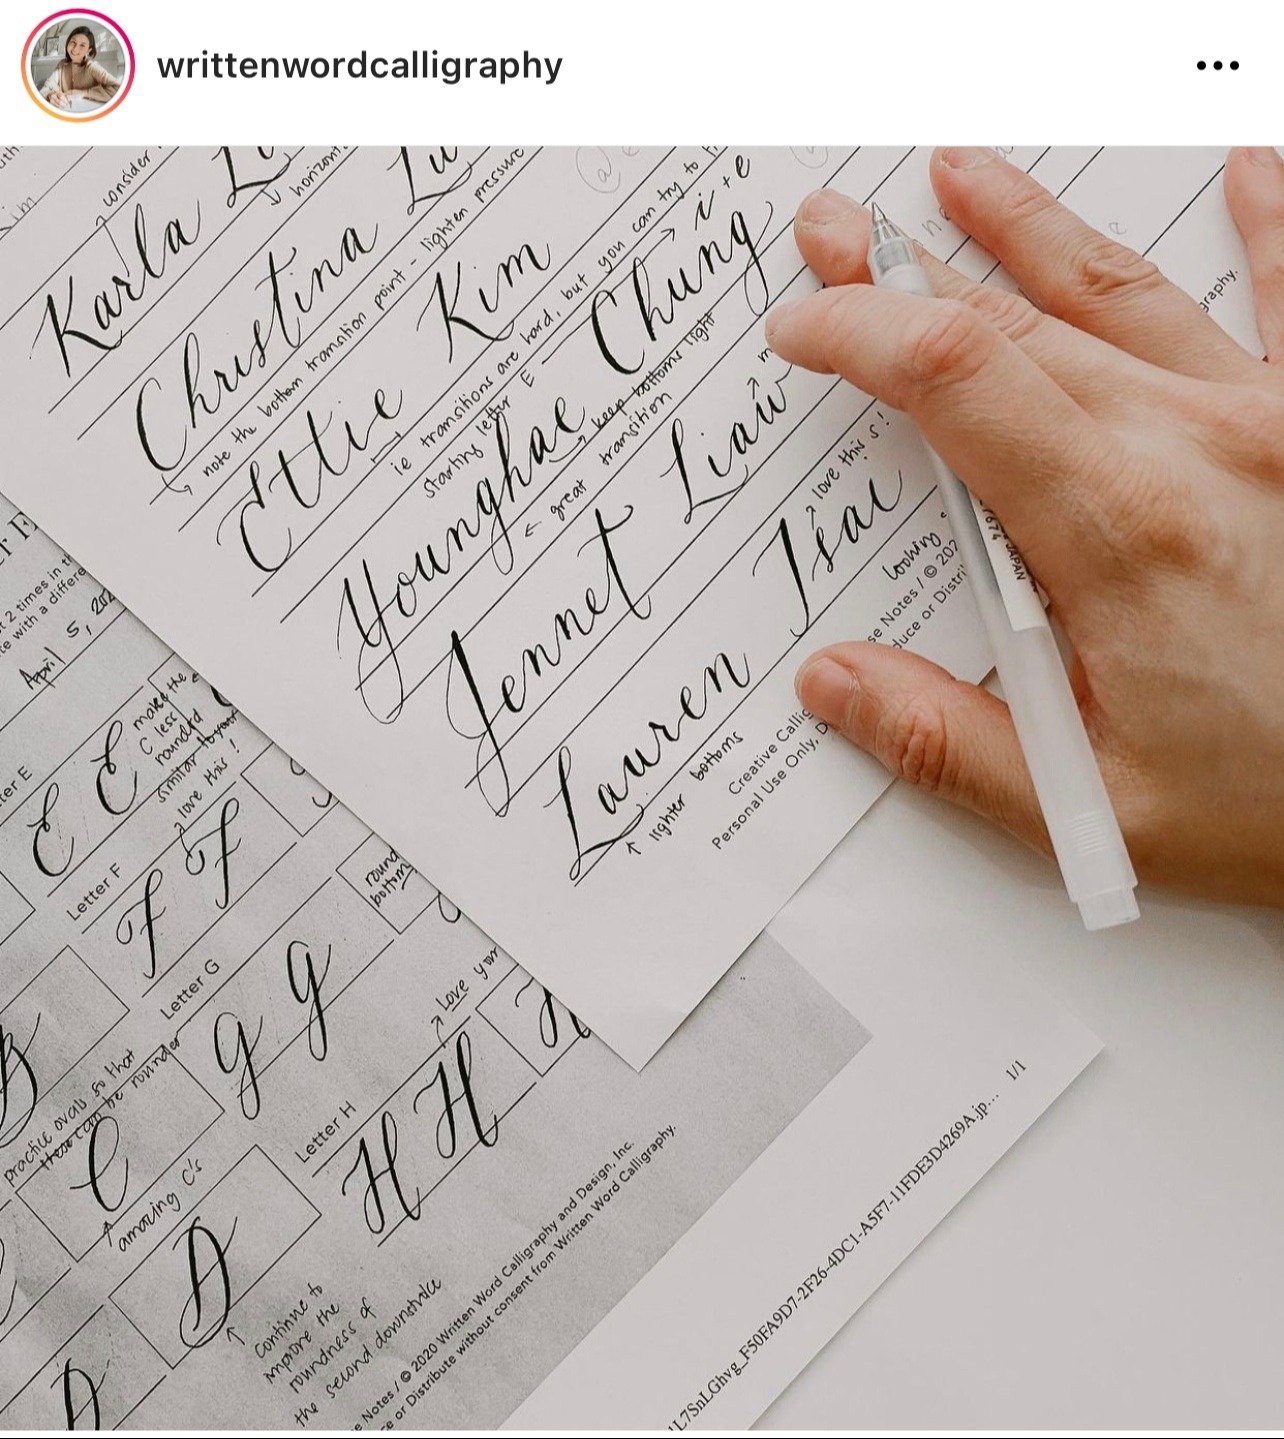 writtenwordcalligraphy
consider
horizont
Karla
Christina Lu
note the bottom transition point - lighten pressure
Ettie Kim
ie transitions are hard, but you can try to
starting letter E → i + e
Younghae Chung
← great transition
keep bottoms light
Jennet Liaw
love this s!
Lauren Isai
↑ lighter bottoms
looking
se Notes / © 202
duce or Distri
Creative Callig
Personal Use Only, D
7674 JAPAN
graphy.
2 times in th
te with a differe
April 5, 202
ter E
E E
makes the
C less
rounded
similar to your
love this!
Letter F
F F
Letter G
G G
round
bottom
Letter H
H H H
Love your
B
practice ovals so that
these can be rounder
C
↑ amazing C's
D
D
↑ Continue to
improve the
roundness of
the second downstroke
e Notes / © 2020 Written Word Calligraphy and Design, Inc.
e or Distribute without consent from Written Word Calligraphy.
L7SnLGhvg_F50FA9D7-2F26-4DC1-A5F7-11FDE3D4269A.jp... 1/1